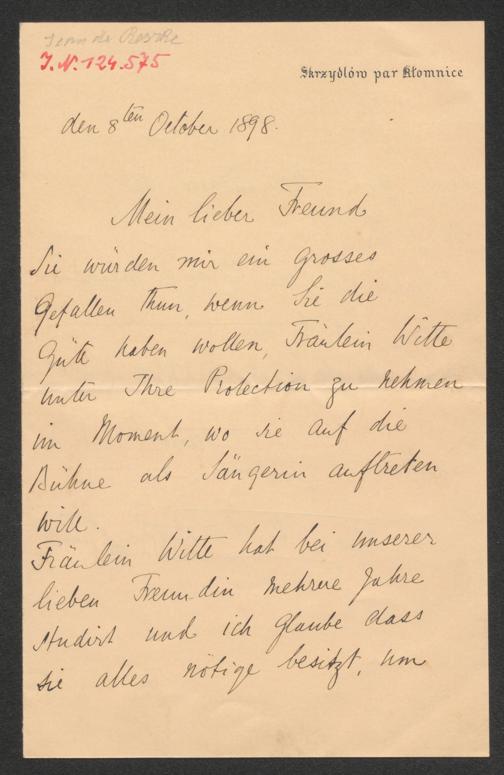 Jean de Reszke
I. N. 124.575
Skrzydlów par Kłomnice
den 8ten October 1898.
Mein lieber Freund
Sie würden mir ein grosses
Gefallen thun, wenn Sie die
Güte haben wollen, Fräulein Witte
unter Ihre Protection zu nehmen
im Moment, wo sie auf die
Bühne als Sängerin auftreten
will.
Fräulein Witte hat bei unserer
lieben Freundin mehrere Jahre
studirt und ich glaube dass
sie alles nötige besitzt, um